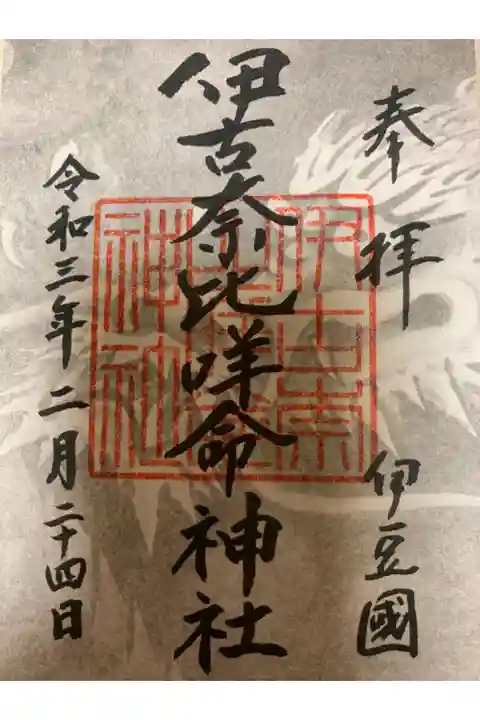 奉拝 伊豆國
伊古奈比咩命神社
令和三年二月二十四日
伊古奈
比咩命
神社